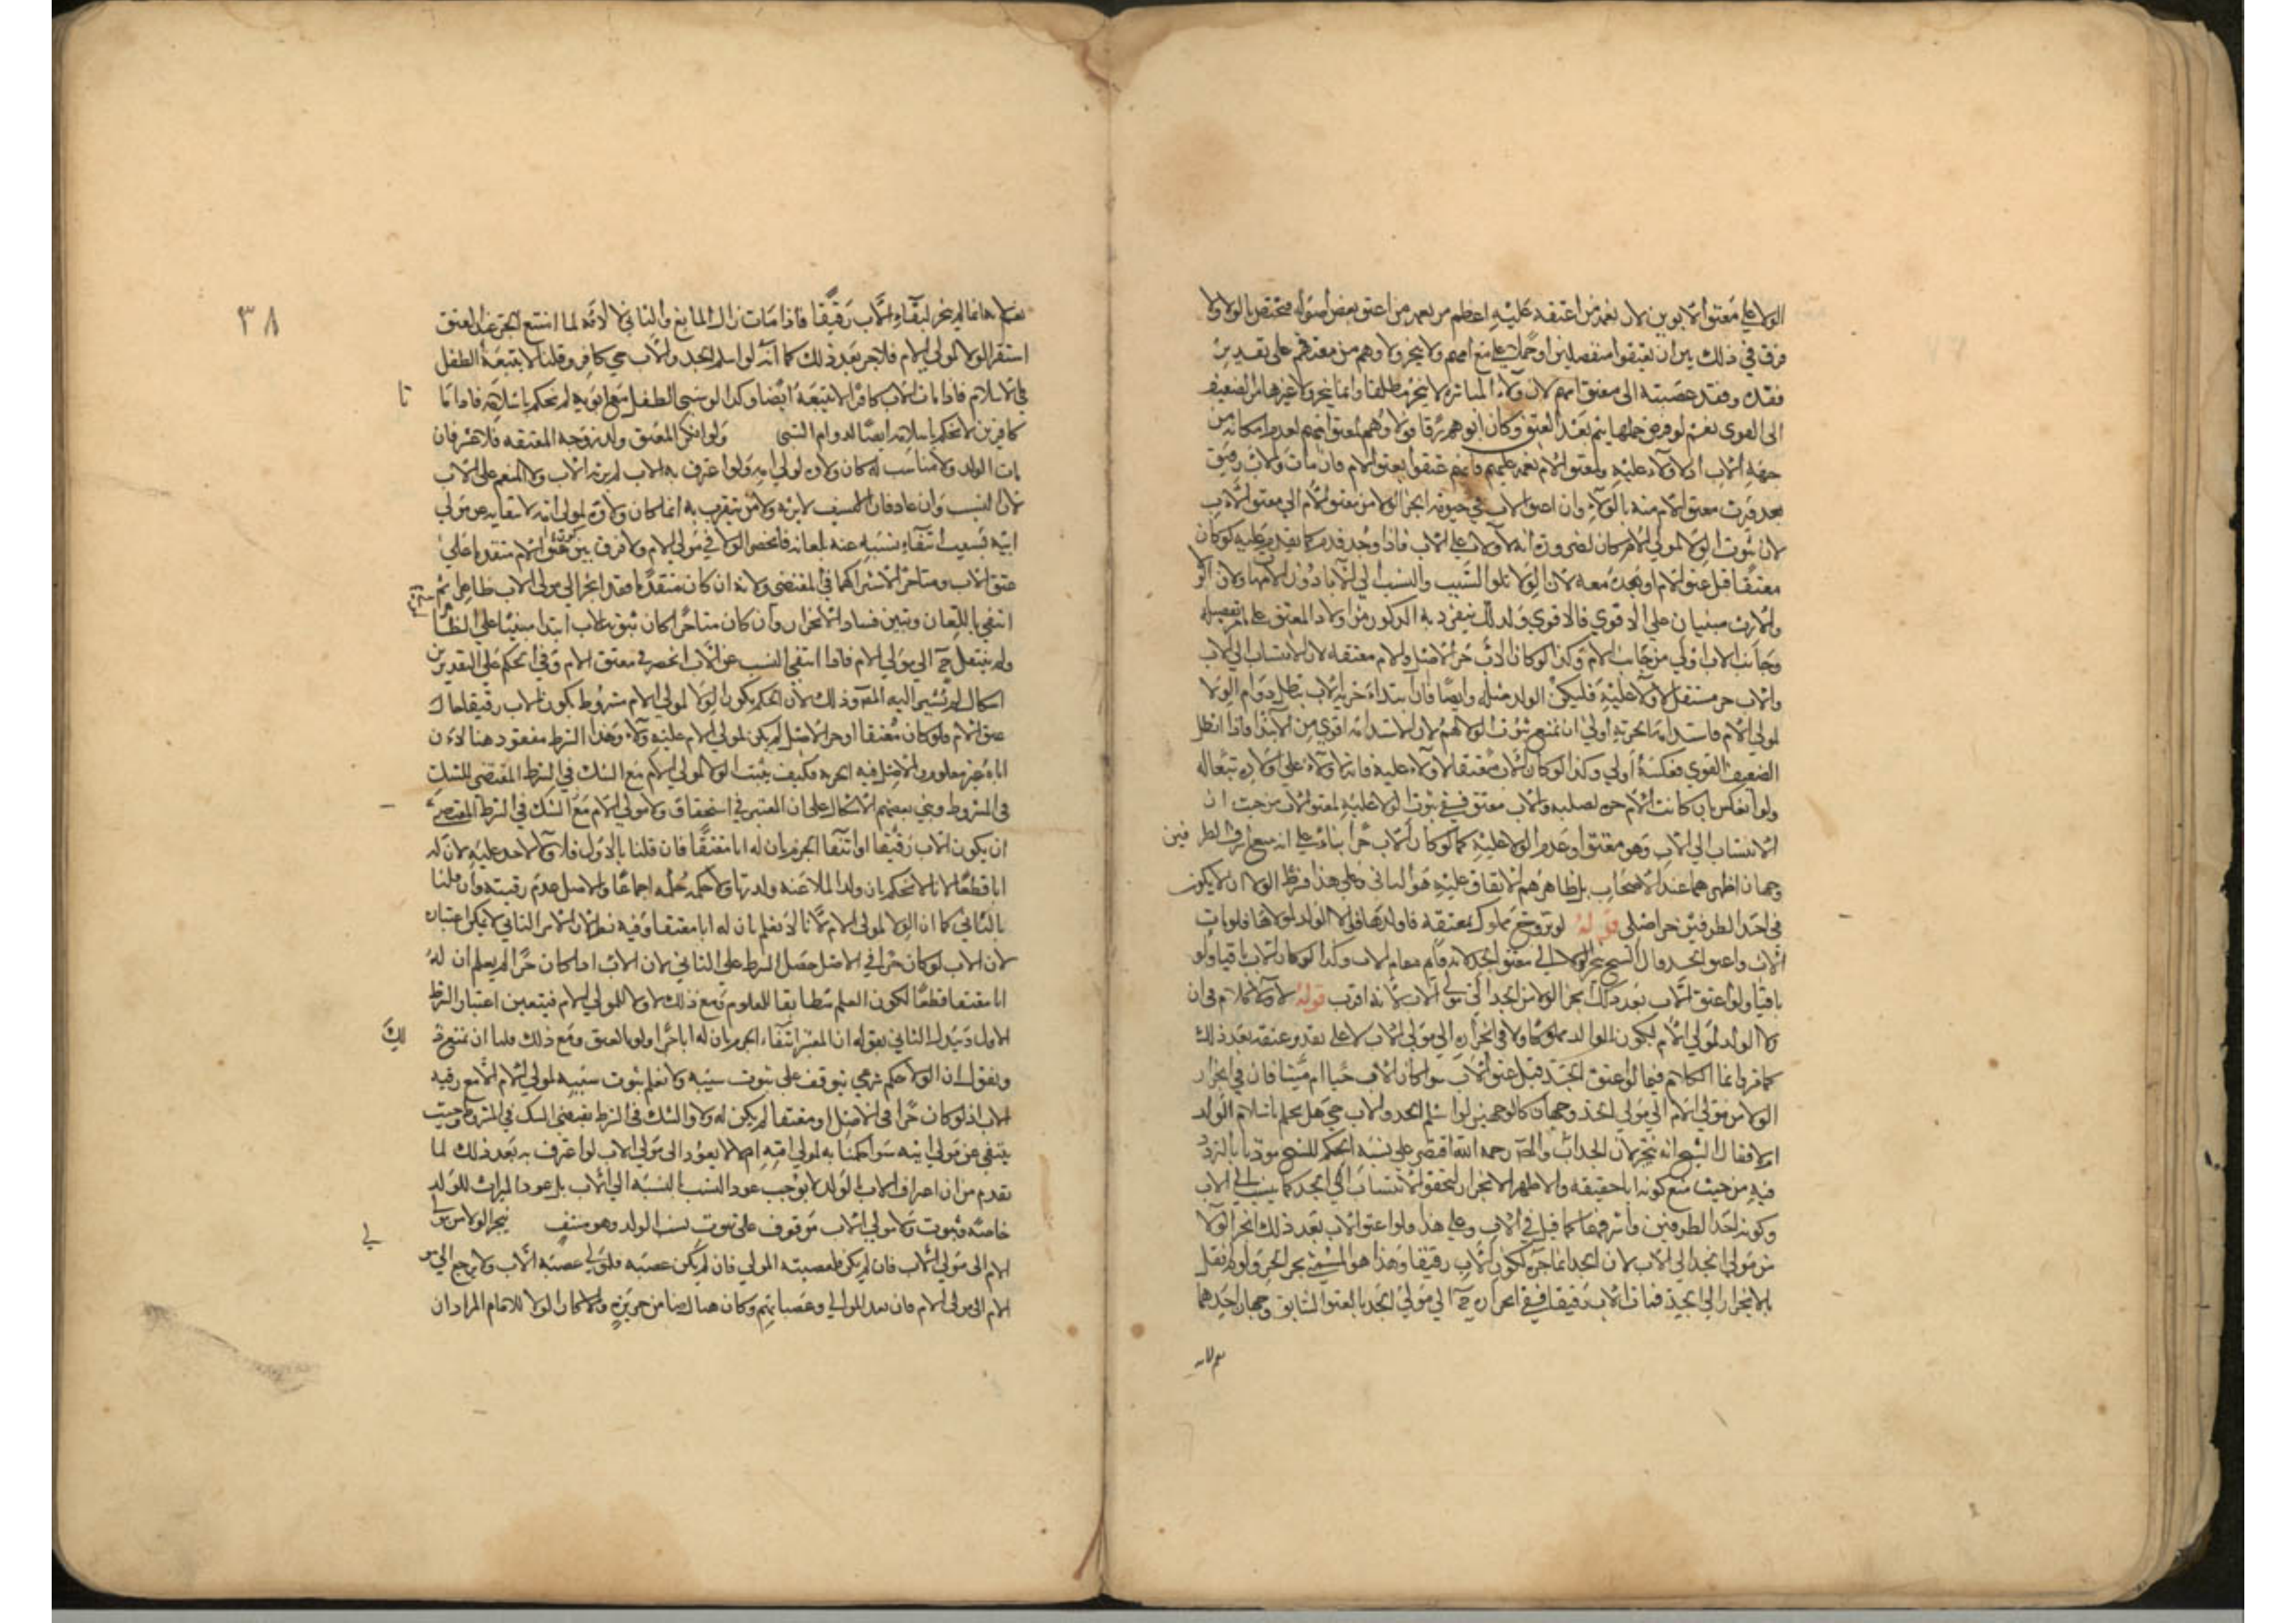 الولاء على معتق الابوين لان نعمة من اعتقه عليه اعظم من نعمة من اعتق بعض اصوله فيختص الولا ولا
فرق في ذلك بين ان يعتقوا منفصلين او حملا مع امهم ولا ينجر ولاوهم من معتقهم على تقدير
فقده وفقد عصبته الى معتق امهم لان ولاء المباشرة لا ينجر مطلقا وانما ينجر ولا غيرها من الضعيف
الى القوي نعم لو فرض حملها بهم بعد العتق وكان ابوهم رقا فولاوهم لمعتق امهم لعدم امكانه من
جهة الاب اذ لا ولاء عليه ولمعتق الام نعمة عليهم فانهم عتقوا بعتق الام فان مات والاب رقيق
بعد ورث معتق الام منه بالولاء وان اعتق الاب في حيوته انجر الولا من معتق الام الى معتق الاب
لان ثبوت الولا لمولى الام كان لضرورة انه لا ولاء على الاب فاذا وجد قدم كما يقدم عليه لو كان
معتقا قبل عتق الام او بعده معه لان الولا تلو النسب والنسب الى الابا دون الامهات ولان الولا
والارث مبنيان على الاقوي فالاقوي ولذلك ينفرد به الذكور من اولاد المعتق على تفصيله
وجانب الاب اولى من جانب الام وكذا لو كان الاب حر الاصل والام معتقه لان الانتساب الى الاب
والاب حر مستقل لا ولاء عليه فليكن الولد مثله وايضا فان ابتداء حرية الاب تبطل دوام الولا
لمولى الام فاستدامة الحرية اولى ان تمنع ثبوت الولا لهم لان الاستدامة اقوى من الابتدا فاذا ابطل
الضعيف القوي فعكسه اولى وكذا لو كان الاب معتقا لا ولاء عليه فانه لا ولاء على اولاده تبعا له
ولو انعكس بان كانت الام حرة اصليه والاب معتق ففي ثبوت الولا عليه لمعتق الاب من حيث ان
الانتساب الى الاب وهو معتق او عدم الولا عليه كما لو كان الاب حرا بناء على انه يتبع اشرف الطرفين
وجهان اظهرهما عند الاصحاب بل ظاهرهم الاتفاق عليه هو الثاني وعلى هذا فشرط الولا ان لا يكون
في احد الطرفين حر اصلي قوله لو تزوج مملوك بمعتقة فاولدها فولا الولد لمولاها فلو مات
الاب واعتق الجد قال الشيخ ينجر الولا الى معتق الجد لانه قام مقام الاب وكذا لو كان الاب باقيا ولو
باقيا ولو اعتق الاب بعد ذلك انجر الولا من الجد الى مولى الاب لانه اقرب قوله لا كلام في ان
ولا الولد لمولى الام لكون الوالد مملوكا ولا في انجراره الى مولى الاب لا على تقدير عتقه بعد ذلك
كما مر وانما الكلام فيما لو اعتق الجد قبل عتق الاب سوا كان الاب حيا ام ميتا فان في انجرار
الولا من مولى الام الى مولى الجد وجهان كالوجهين لو اسلم الجد والاب حي هل يحكم باسلام الولد
ام لا فقال الشيخ انه ينجر لان الجد اب والمص رحمه الله اقتصر على نسبة الحكم للشيخ موذنا بالتردد
فيه من حيث منع كونه ابا حقيقه والاظهر الانجرار لتحقق الانتساب الى الجد كما ينسب الى الاب
وكونه احد الطرفين واشرفهما كما قيل في الاب وعلى هذا ولو اعتق الاب بعد ذلك انجر الولا
من مولى الجد الى الاب لان الجد انما جره لكون الاب رقيقا وهذا هو المسمى بجر الجر ولو لم نقل
بالانجرار الى الجد فمات الاب رقيقا ففي انجراره ح الى مولى الجد بالعتق السابق وجهان احدهما
نعم لانه
٣٨
نعم لانه انما لم ينجر لبقاء الاب رقيقا فاذا مات زال المانع والثاني لا لانه لما امتنع الجر عند العتق
استقر الولا لمولى الام فلا جر بعد ذلك كما انه لو اسلم الجد والاب حي كافر وقلنا لا يتبعه الطفل
في الاسلام فاذا مات الاب كافرا لا يتبعه ايضا وكذا لو سبي الطفل مع ابويه لم نحكم باسلامه فاذا ماتا
كافرين لا نحكم باسلامه ايضا لدوام السبي ولو انكر المعتق ولد زوجته المعتقه فلاعن فان
مات الولد ولا مناسب له كان ولاوه لمولى امه ولو اعترف به الاب لم يرثه الاب ولا المنعم على الاب
لان النسب وان عاد فان المسيب لا يرثه ولا من يتقرب به انما كان ولاوه لمولى امه لانتفايه عن مولى
ابيه بسبب انتفاء نسبه عنه بلعانه فانحصر الولا في مولى الام ولا فرق بين عتق الام متقدما على
عتق الاب ومتاخرا لاشتراكهما في المقتضي ولانه ان كان متقدما فقد انجر الى مولى الاب ظاهرا ثم
انتفي باللعان وتبين فساد الانجرار وان كان متاخرا كان ثبوته للاب ابتدا مبنيا على الظاهر
ولم ينتقل ح الى مولى الام فاذا انتفي النسب عن الاب انحصر في معتق الام وفي الحكم على التقديرين
اشكال لم يشر اليه المص وذلك لان الحكم بكون الولا لمولى الام مشروط بكون الاب رقيقا حال
عتق الام فلو كان معتقا او حر الاصل لم يكن لمولى الام عليه ولاء وهذا الشرط مفقود هنا لان
اباه غير معلوم والاصل فيه الحرية فكيف يثبت الولا لمولى الام مع الشك في الشرط المقتضي للشك
في المشروط وبني بعضهم الاشكال على ان المعتبر في استحقاق ولا مولى الام مع الشك في الشرط المقتضي
ان يكون الاب رقيقا او انتفا الجزم بان له ابا معتقا فان قلنا بالاول فلا ولاء لاحد عليه لان له
ابا قطعا الا انا لا نحكم بان ولد الملاعنه ولد زنا ولا حكمه حكمه اجماعا والاصل عدم رقيته وان قلنا
بالثاني كما ان الولا لمولى الام لانا لا نعلم بان له ابا معتقا وفيه نظر لان الامر الثاني لا يمكن اعتباره
لان الاب لو كان حرا في الاصل حصل الشرط على الثاني لان الاب اذا كان حرا لم يعلم ان له
ابا معتقا قطعا لكون العلم مطابقا للمعلوم ومع ذلك لا ولا لمولى الام فيتعين اعتبار الشرط
الاول وتبدل الثاني بقوله ان المعتبر انتفاء الجزم بان له ابا حرا ولو بالعتق ومع ذلك فلنا ان نمنع ذلك
ونقول ان الولا حكم شرعي يتوقف على ثبوت سببه ولا نعلم ثبوت سببه لمولى الام الا مع رقية
الاب اذ لو كان حرا في الاصل او معتقا لم يكن له ولا والشك في الشرط يقتضي الشك في المشروط وحيث
ينتفي عن مولى ابيه سوا حكمنا به لمولى امه ام لا لا يعود الى مولى الاب لو اعترف به بعد ذلك لما
تقدم من ان اعتراف الاب بالولد لا يوجب عود النسب بالنسبة الى الاب بل عود الميراث للولد
خاصه وثبوت ولا مولى الاب موقوف على ثبوت نسب الولد وهو منتف ينجر الولا من مولى
الام الى مولى الاب فان لم يكن فلعصبته المولى فان لم يكن عصبه فلمولى عصبة الاب ولا يرجع الى مولى
الام الى مولى الام فان فقد الموالي وعصباتهم وكان هناك ضامن جريرة والا كان الولا للامام المراد ان